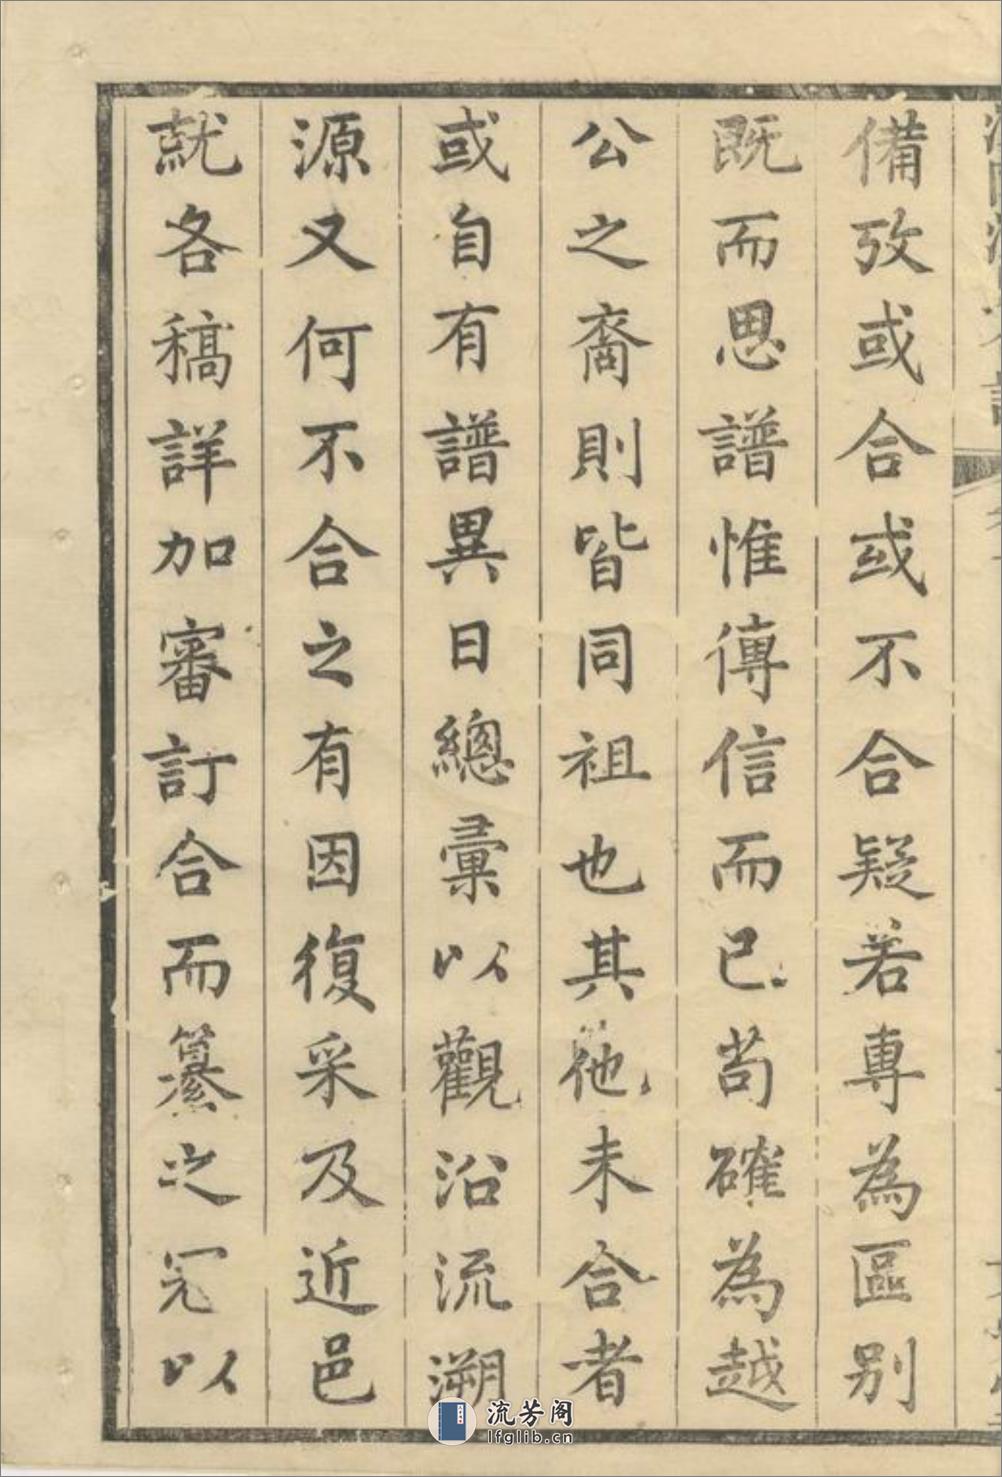 備攷或合或不合疑若專為區别
既而思譜惟傳信而已苟確為越
公之裔則皆同祖也其他未合者
或自有譜異日總彙以觀沿流溯
源又何不合之有因復采及近邑
就各稿詳加審訂合而纂之冠以
流芳阁
lfglib.cn